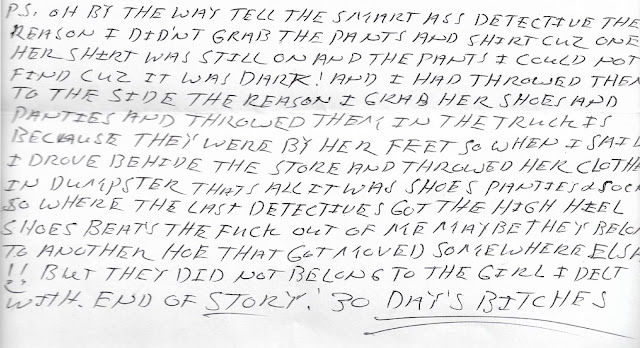 P.S. OH BY THE WAY TELL THE SMART ASS DETECTIVE THE
REASON I DIDN'T GRAB THE PANTS AND SHIRT CUZ ONE
HER SHIRT WAS STILL ON AND THE PANTS I COULD NOT
FIND CUZ IT WAS DARK! AND I HAD THROWED THEM
TO THE SIDE THE REASON I GRAB HER SHOES AND
PANTIES AND THROWED THEM IN THE TRUCK IS
BECAUSE THEY WERE BY HER FEET SO WHEN I SAID
I DROVE BEHIDE THE STORE AND THROWED HER CLOTHE
IN DUMPSTER THATS ALL IT WAS SHOES PANTIES & SOCK
SO WHERE THE LAST DETECTIVES GOT THE HIGH HIEL
SHOES BEATS THE FUCK OUT OF ME MAYBE THEY BELON
TO ANOTHER HOE THAT GOT MOVED SOMEWHERE ELSA
!! BUT THEY DID NOT BELONG TO THE GIRL I DELT
WITH. END OF STORY.' 30 DAY'S BITCHES